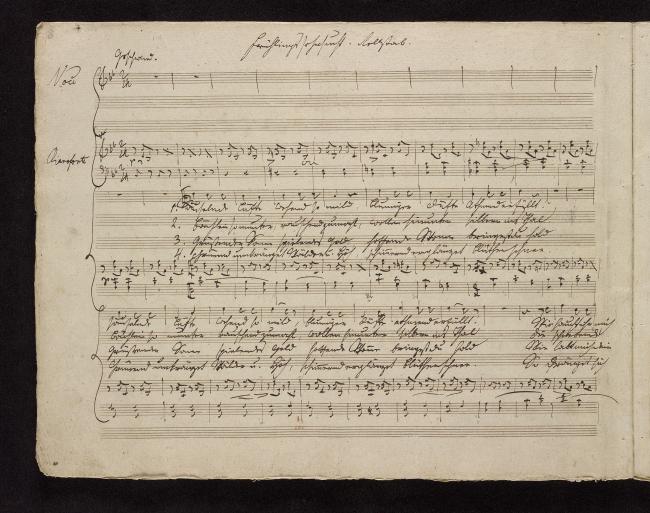 Frühlingssehnsucht. Rellstab.
Geschwind.
Pianoforte
1. Säuselnde Lüfte wehend so mild blumiger Düfte athmend erfüllt
2. Bächlein so munter rauschend zumal, wollen hinunter silbern ins Thal
3. Grüßender Sonne spielendes Gold hoffende Wonne bringest du hold
4. Grünend umkränzet Wälder u. Höh, schimmernd erglänzet Blüthenschnee
Säuselnde Lüfte wehend so mild blumiger Düfte athmend erfüllt Wie haucht ihr mich
Bächlein so munter rauschend zumal wollen hinunter silbern ins Thal Die schwebende
Grüßender Sonne spielendes Gold hoffende Wonne bringest du hold Wie labt mich dein
Grünend umkränzet Wälder u. Höh, schimmernd erglänzet Blüthenschnee So dränget sich